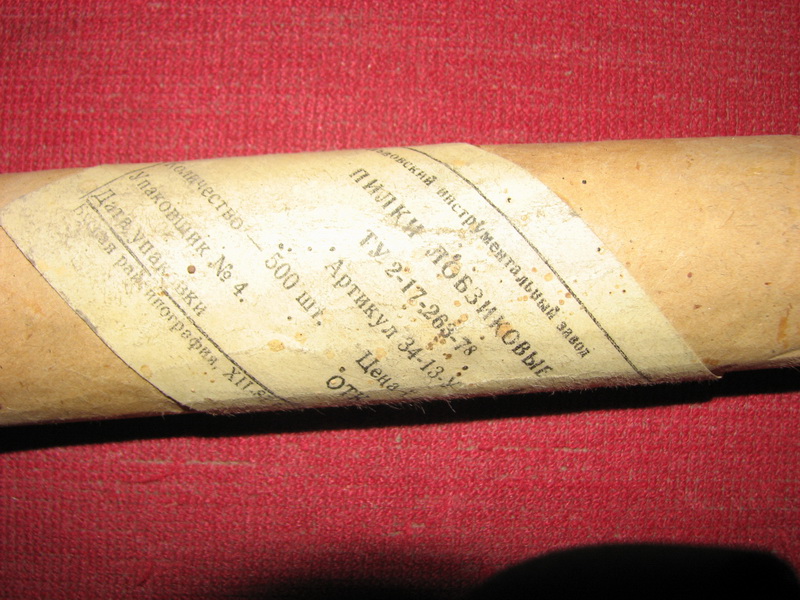 инструментальный завод
ПИЛКИ ЛОБЗИКОВЫЕ
ТУ 2-17-263-78
Артикул 34-13-
Цена
ОТК
Количество — 500 шт.
Упаковщик № 4.
Дата упак вки
рай ипография, XII-